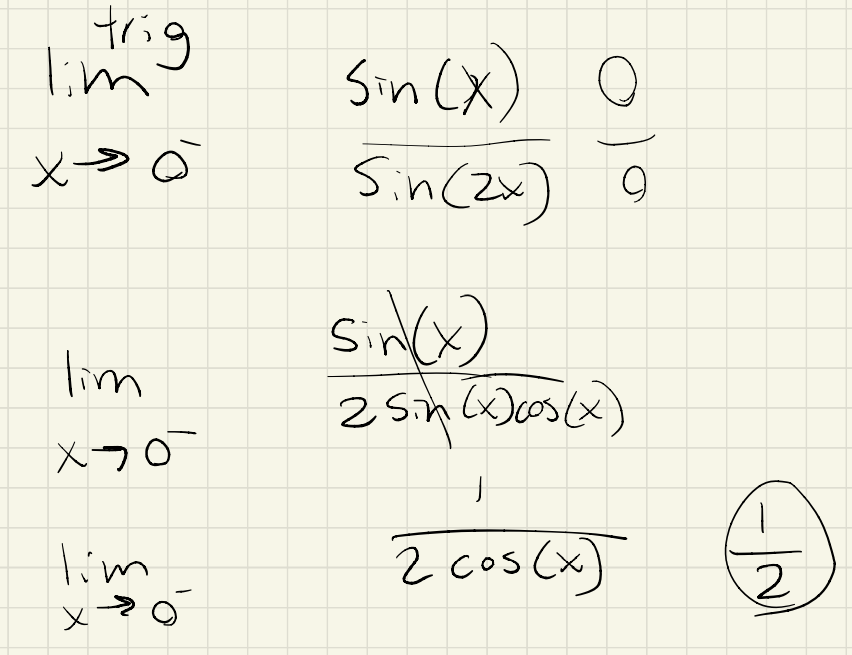 trig
lim x→0⁻ sin(x)/sin(2x) 0/0
lim x→0⁻ sin(x)/2sin(x)cos(x)
lim x→0⁻ 1/2cos(x) 1/2